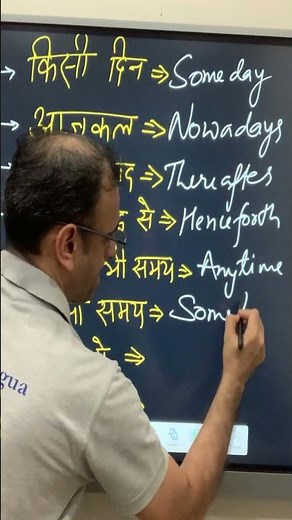 → किसी दिन ⇒ Someday
→ आजकल ⇒ Nowadays
⇒ Thereafter
से ⇒ Henceforth
भी समय ⇒ Anytime
समय ⇒ Some
⇒
gua